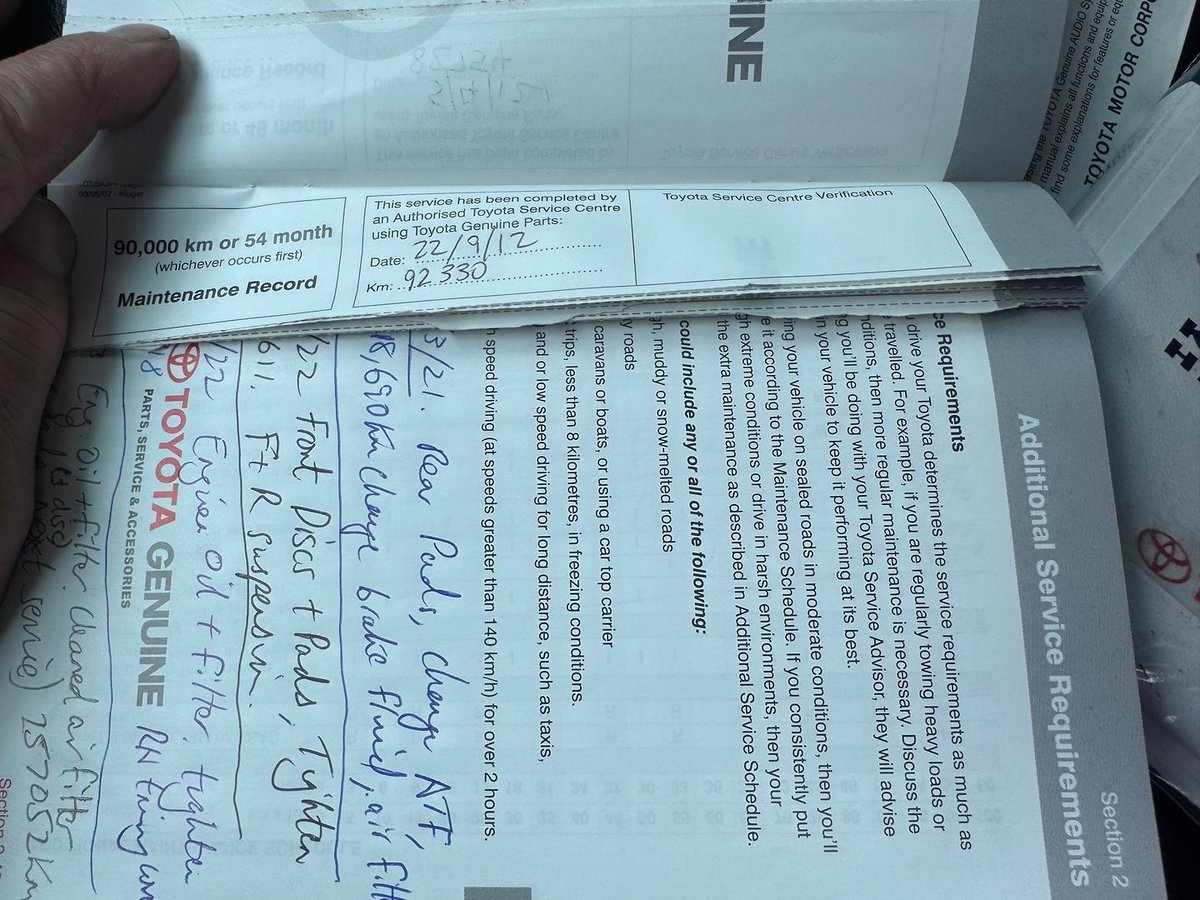 INE
using the TOYOTA Genuine AUDIO
manual explains all functions and
find some explanations for features or
TOYOTA MOTOR CORP
03/05/07 - Kluger
90,000 km or 54 month
(whichever occurs first)
Maintenance Record
This service has been completed by
an Authorised Toyota Service Centre
using Toyota Genuine Parts:
Date: 22/9/12
Km: 92330
Toyota Service Centre Verification
Section 2
Additional Service Requirements
ce Requirements
drive your Toyota determines the service requirements as much as
travelled. For example, if you are regularly towing heavy loads or
nditions, then more regular maintenance is necessary. Discuss the
g you'll be doing with your Toyota Service Advisor, they will advise
n your vehicle to keep it performing at its best.
ing your vehicle on sealed roads in moderate conditions, then you'll
e it according to the Maintenance Schedule. If you consistently put
gh extreme conditions or drive in harsh environments, then your
the extra maintenance as described in Additional Service Schedule.
could include any or all of the following:
gh, muddy or snow-melted roads
y roads
caravans or boats, or using a car top carrier
trips, less than 8 kilometres, in freezing conditions.
and or low speed driving for long distance, such as taxis,
h speed driving (at speeds greater than 140 km/h) for over 2 hours.
3/21. Rear Pads, change ATF,
18,690km change brake fluid, air filt
/22 Front Discs + Pads, Tighten
611. Ft R suspension.
/22 Engine oil + filter. tighten
TOYOTA GENUINE
PARTS, SERVICE & ACCESSORIES
Eng. oil + filter cleaned air filter
next service) 257052km